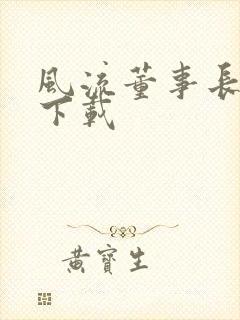 風流董事長
下載
黃寶生